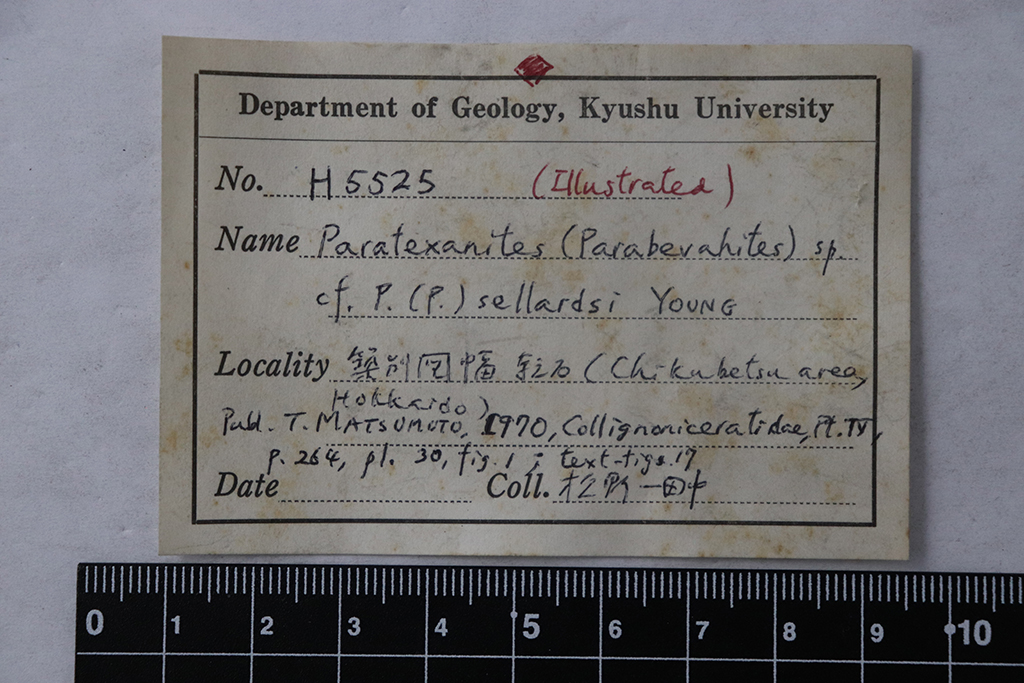 Department of Geology, Kyushu University
No. H5525 (Illustrated)
Name Paratexanites (Parabevahites) sp.
cf. P. (P.) sellardsi YOUNG
Locality 築別図幅 (Chikubetsu area,
Hokkaido)
Publ. T. MATSUMOTO, 1970, Collignoniceratidae, Pt. IV,
p. 264, pl. 30, fig. 1; text-figs. 17
Date Coll. 田中
0 1 2 3 4 5 6 7 8 9 10